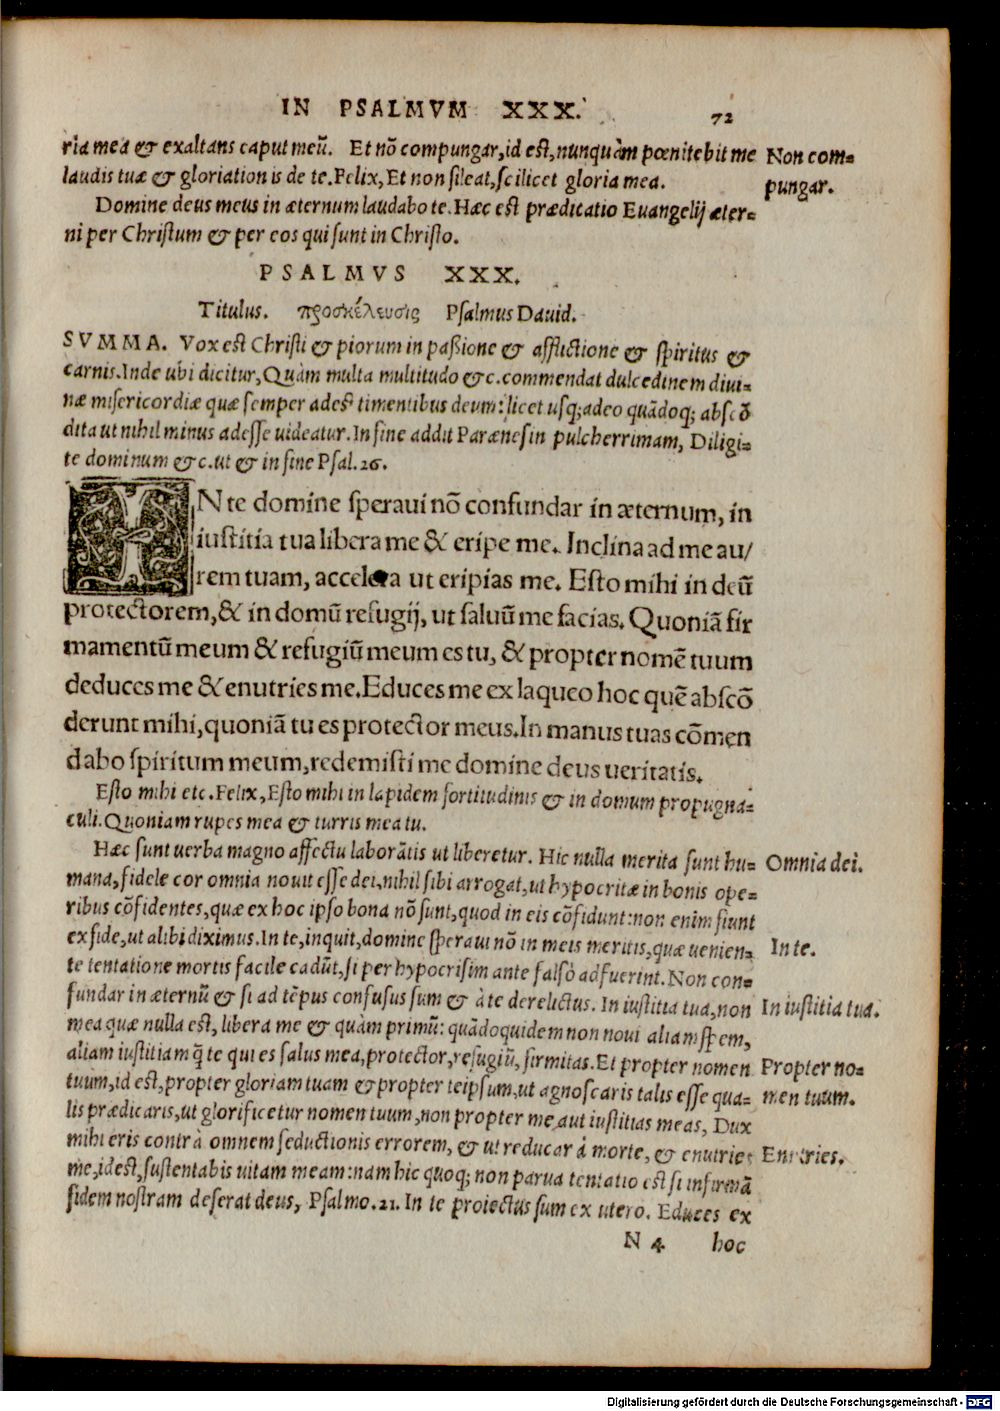 IN PSALMVM XXX. 72
ria mea & exaltans caput meũ. Et nõ compungar, id est, nunquàm pœnitebit me
Non com=
laudis tuæ & gloriationis de te. Felix, Et non sileat, scilicet gloria mea.
pungar.
Domine deus meus in æternum laudabo te. Hæc est prædicatio Euangelij æter=
ni per Christum & per eos qui sunt in Christo.
PSALMVS XXX.
Titulus. προσκέλευσις Psalmus Dauid.
SVMMA. Vox est Christi & piorum in paßione & afflictione & spiritus &
carnis. Inde ubi dicitur, Quàm multa multitudo &c. commendat dulcedinem diui=
næ misericordiæ quæ semper adest timentibus deum: licet usq; adeo quãdoq; abscõ
dita ut nihil minus adesse uideatur. In fine addit Parænesin pulcherrimam, Diligi=
te dominum &c. ut & in fine Psal. 26.
IN te domine speraui nõ confundar in æternum, in
iustitia tua libera me & eripe me. Inclina ad me au/
rem tuam, accelera ut eripias me. Esto mihi in deũ
protectorem, & in domũ refugij, ut saluũ me facias. Quoniã fir
mamentũ meum & refugiũ meum es tu, & propter nomẽ tuum
deduces me & enutries me. Educes me ex laqueo hoc quẽ abscõ
derunt mihi, quoniã tu es protector meus. In manus tuas cõmen
dabo spiritum meum, redemisti me domine deus ueritatis.
Esto mihi etc. Felix, Esto mihi in lapidem fortitudinis & in domum propugna=
culi. Quoniam rupes mea & turris mea tu.
Hæc sunt uerba magno affectu laborãtis ut liberetur. Hic nulla merita sunt hu=
Omnia dei.
mana, fidele cor omnia nouit esse dei, nihil sibi arrogat, ut hypocritæ in bonis ope=
ribus cõfidentes, quæ ex hoc ipso bona nõ sunt, quod in eis cõfidunt: non enim fiunt
ex fide, ut alibi diximus. In te, inquit, domine speraui nõ in meis meritis, quæ uenien=
In te.
te tentatione mortis facile cadũt, si per hypocrisim ante falsò adfuerint. Non con=
fundar in æternũ & si ad tẽpus confusus sum & à te derelictus. In iustitia tua, non
In iustitia tua.
mea quæ nulla est, libera me & quàm primũ: quãdoquidem non noui aliam spem,
aliam iustitiam q̃ te qui es salus mea, protector, refugiũ, firmitas. Et propter nomen
Propter no=
tuum, id est, propter gloriam tuam & propter teipsum, ut agnoscaris talis esse qua=
men tuum.
lis prædicaris, ut glorificetur nomen tuum, non propter me aut iustitias meas, Dux
mihi eris contrà omnem seductionis errorem, & ut reducar à morte, & enutries
Enutries.
me, id est, sustentabis uitam meam: nam hic quoq; non parua tentatio est si infirmã
fidem nostram deserat deus, Psalmo. 21. In te proiectus sum ex utero. Educes ex
N 4 hoc
Digitalisierung gefördert durch die Deutsche Forschungsgemeinschaft - DFG